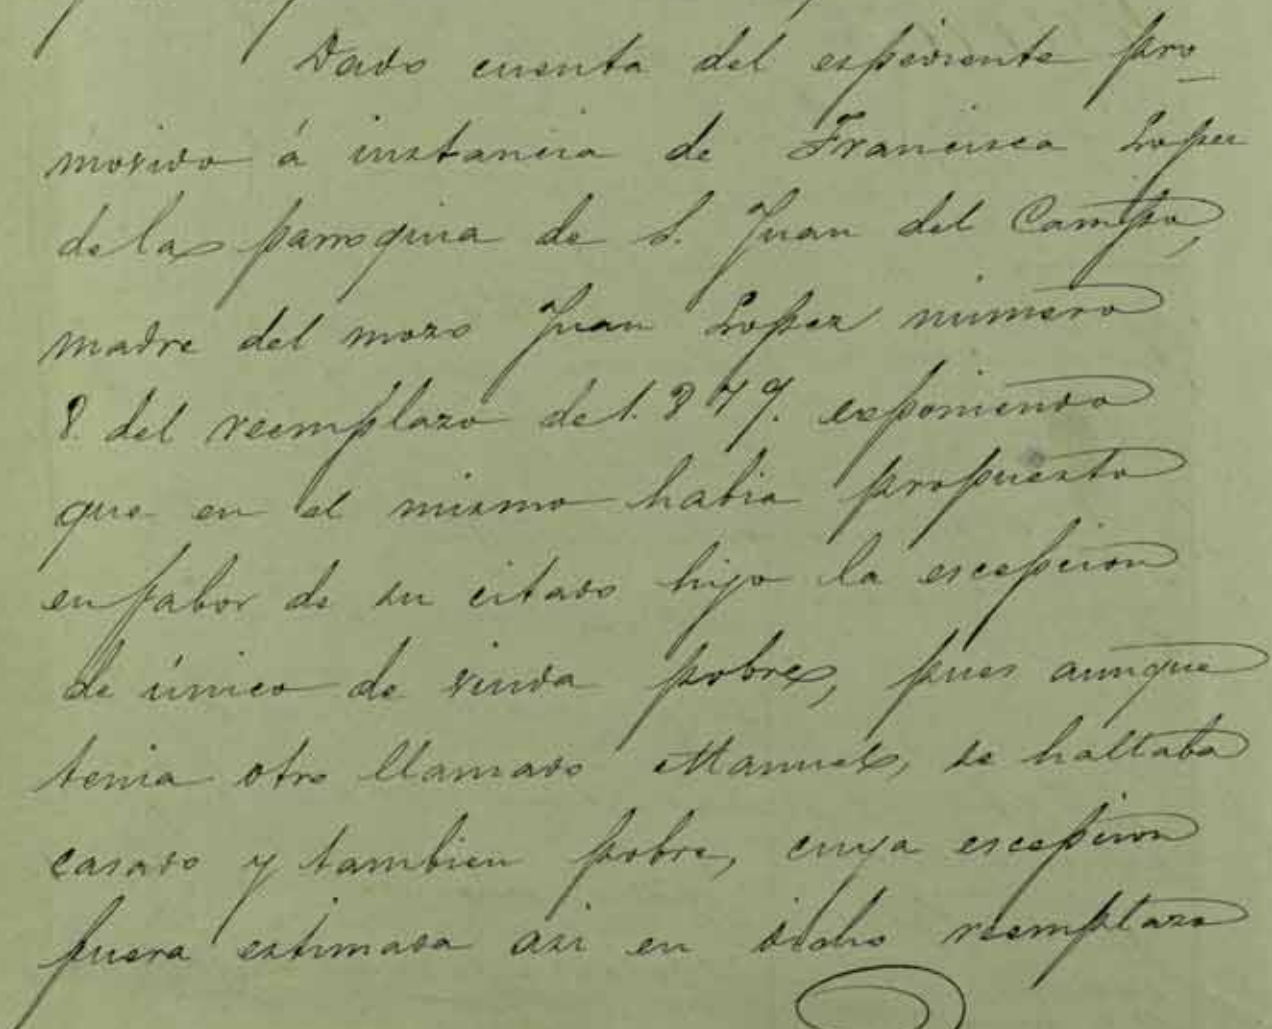 Dado cuenta del espediente pro
movido á instancia de Francisca Lopez
de la parroquia de S. Juan del Campo,
madre del mozo Juan Lopez número
8. del reemplazo de 1.879. esponiendo
que en el mismo habia propuesto
en fabor de su citado hijo la escepcion
de único de viuda pobre, pues aunque
tenia otro llamado Manuel, se hallaba
casado y tambien pobre, cuya escepcion
fuera estimada asi en dicho reemplazo